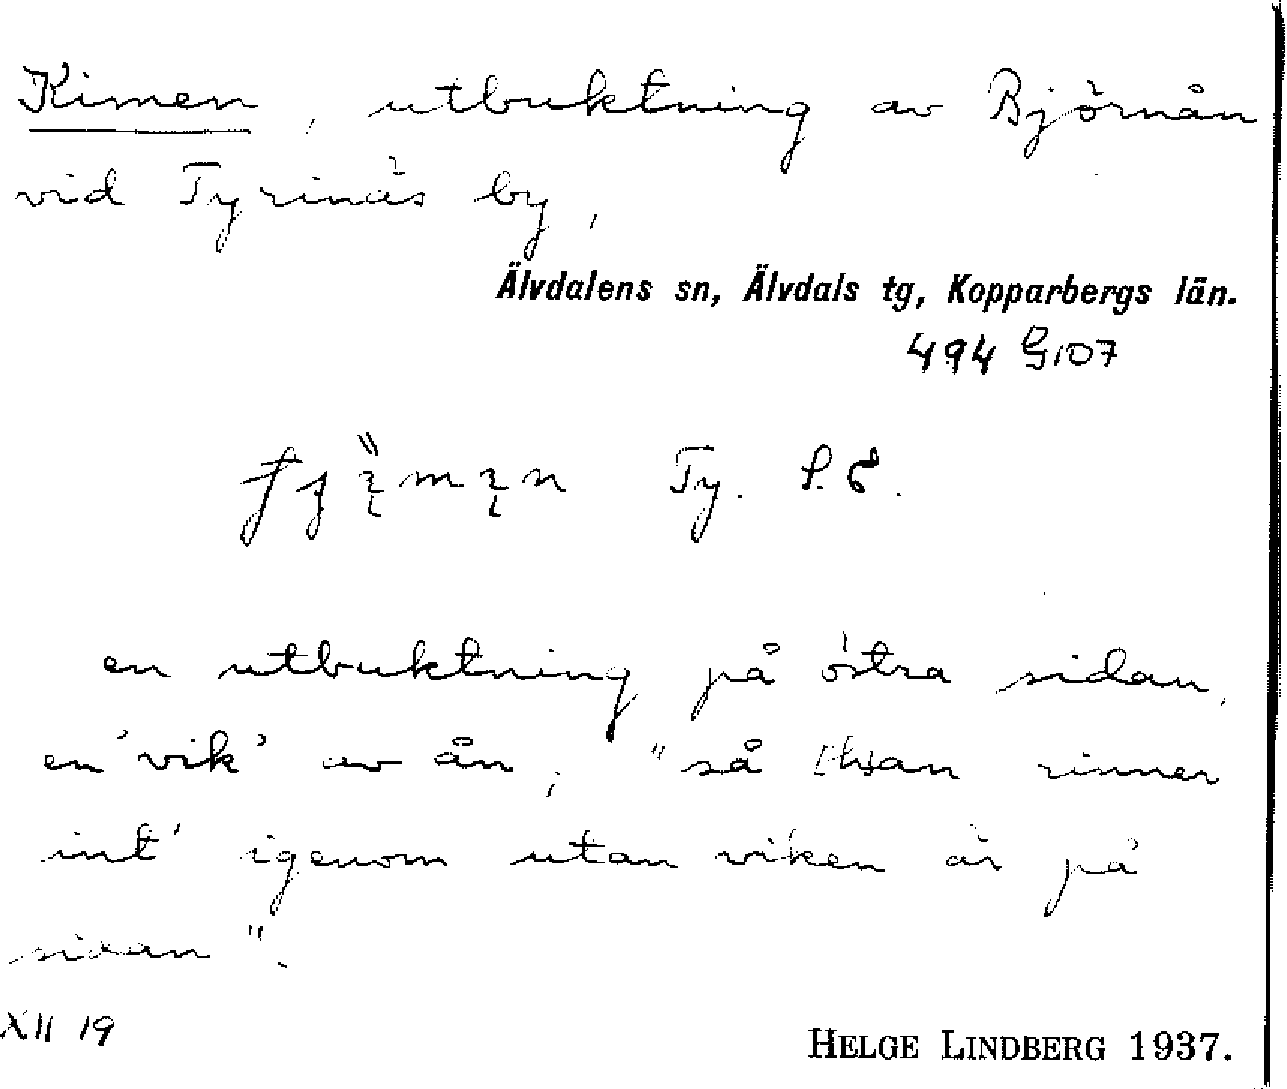 Kimen, utbuktning av Björnån
vid Tyrinäs by,
Älvdalens sn, Älvdals tg, Kopparbergs län.
494 G107
Ty.
en utbuktning på östra sidan,
en 'vik' av ån, "så [h]an rinner
int' igenom utan viken är på
sidan".
XII 19
HELGE LINDBERG 1937.